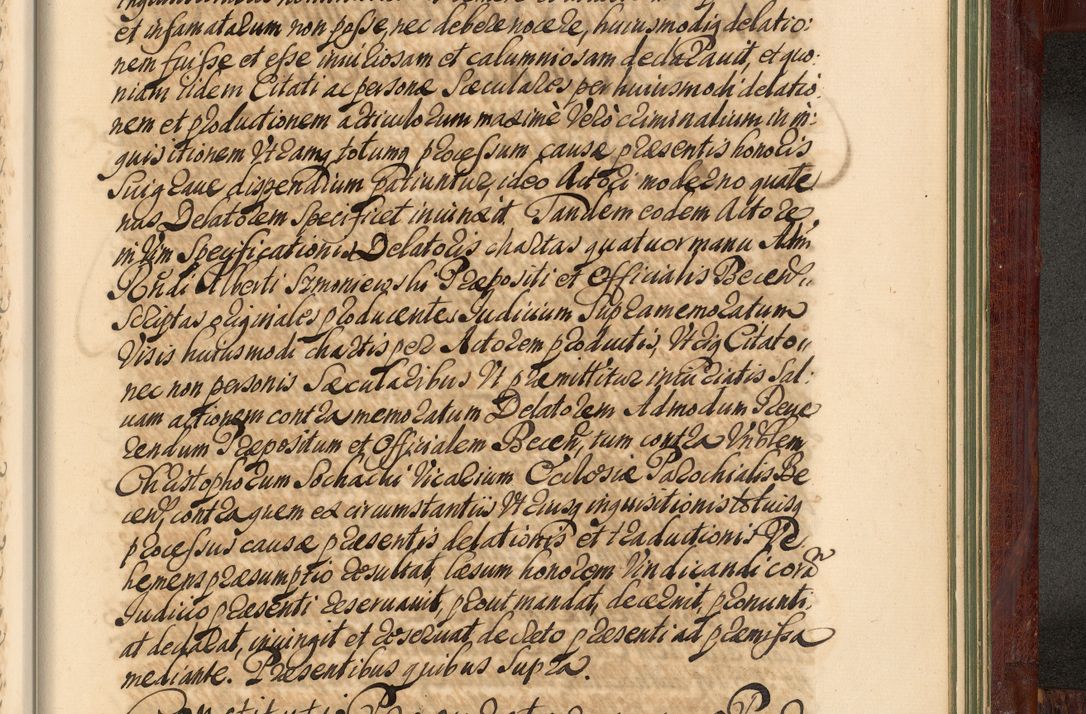 et infamatarum non posse, nec debere nocere, huiusmodi delatio:
nem fuisse et esse iniuriosam et calumniosam declarauit, et quo:
niam iidem Citati ac personæ Sæculares per huiusmodi delatio:
nem et productionem articulorum maximè Verò criminalium in in:
quisitionem Vtramq totumq processum causæ præsentis honoris
sui graue dispendium patiuntur, ideo Actori moderno quate
nus Delatorem specificet iniunxit. Tandem eodem Actore,
in Vim Specificationis Delatoris chartas quatuor manu Adm
Rndi Alberti Szmoniewski Præpositi et Officialis Becen:
Scriptas originales producente, Iudicium Supramemoratum
Visis huiusmodi chartis per Actorem productis, Vtrig Citato
nec non personis Sæcularibus Vt præmittitur Sal:
uam actionem contra memoratum Delatorem Admodum Reue
rendum Præpositum et Officialem Becen, tum contra Vnblem
Christophorum Sochacki Vicarium Ecclesiæ Parochialis Be
cen, contra quem ex circumstantiis Vtriusq inquisitionis totiusq
processus causæ præsentis delationis et traductionis Ve
hemens præsumptio resultat, læsum honorem Vindicandi corã
Iudicio præsenti reseruauit, prout mandat, decernit, pronunti
at declarat, iniungit et reseruat, decreto præsenti ad præmissa
mediante. Præsentibus quibus Supra.